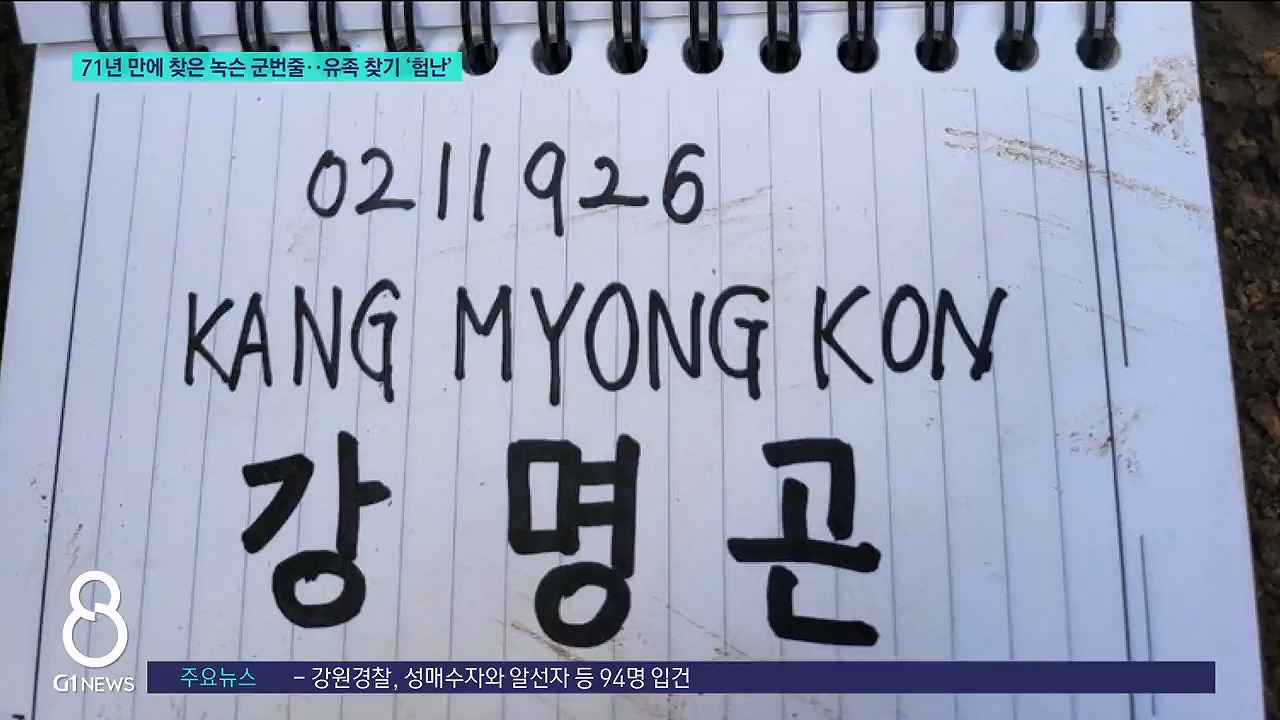 71년 만에 찾은 녹슨 군번줄‥유족 찾기 ‘험난’
0211926
KANG MYONG KON
강 명 곤
8
G1 NEWS
주요뉴스 - 강원경찰, 성매수자와 알선자 등 94명 입건